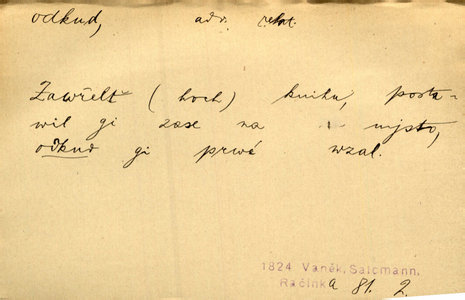 odkud, adv. relat.
Zawřelť (hoch) knihu, posta-
wil gi zase na mjsto,
odkud gi prwé wzal.
1824 Vaněk, Salcmann,
Račinka 81. 2.